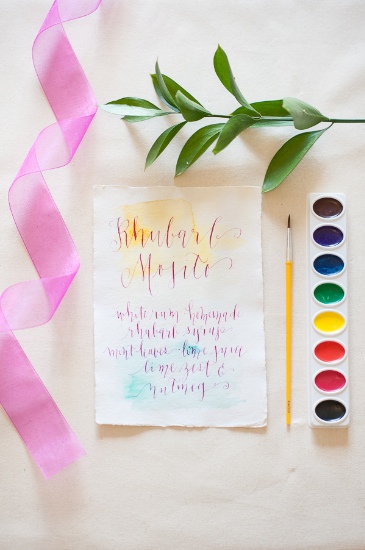 Rhubarb
Mojito
white rum homemade
rhubarb syrup
mint leaves lime juice
lime zest &
nutmeg